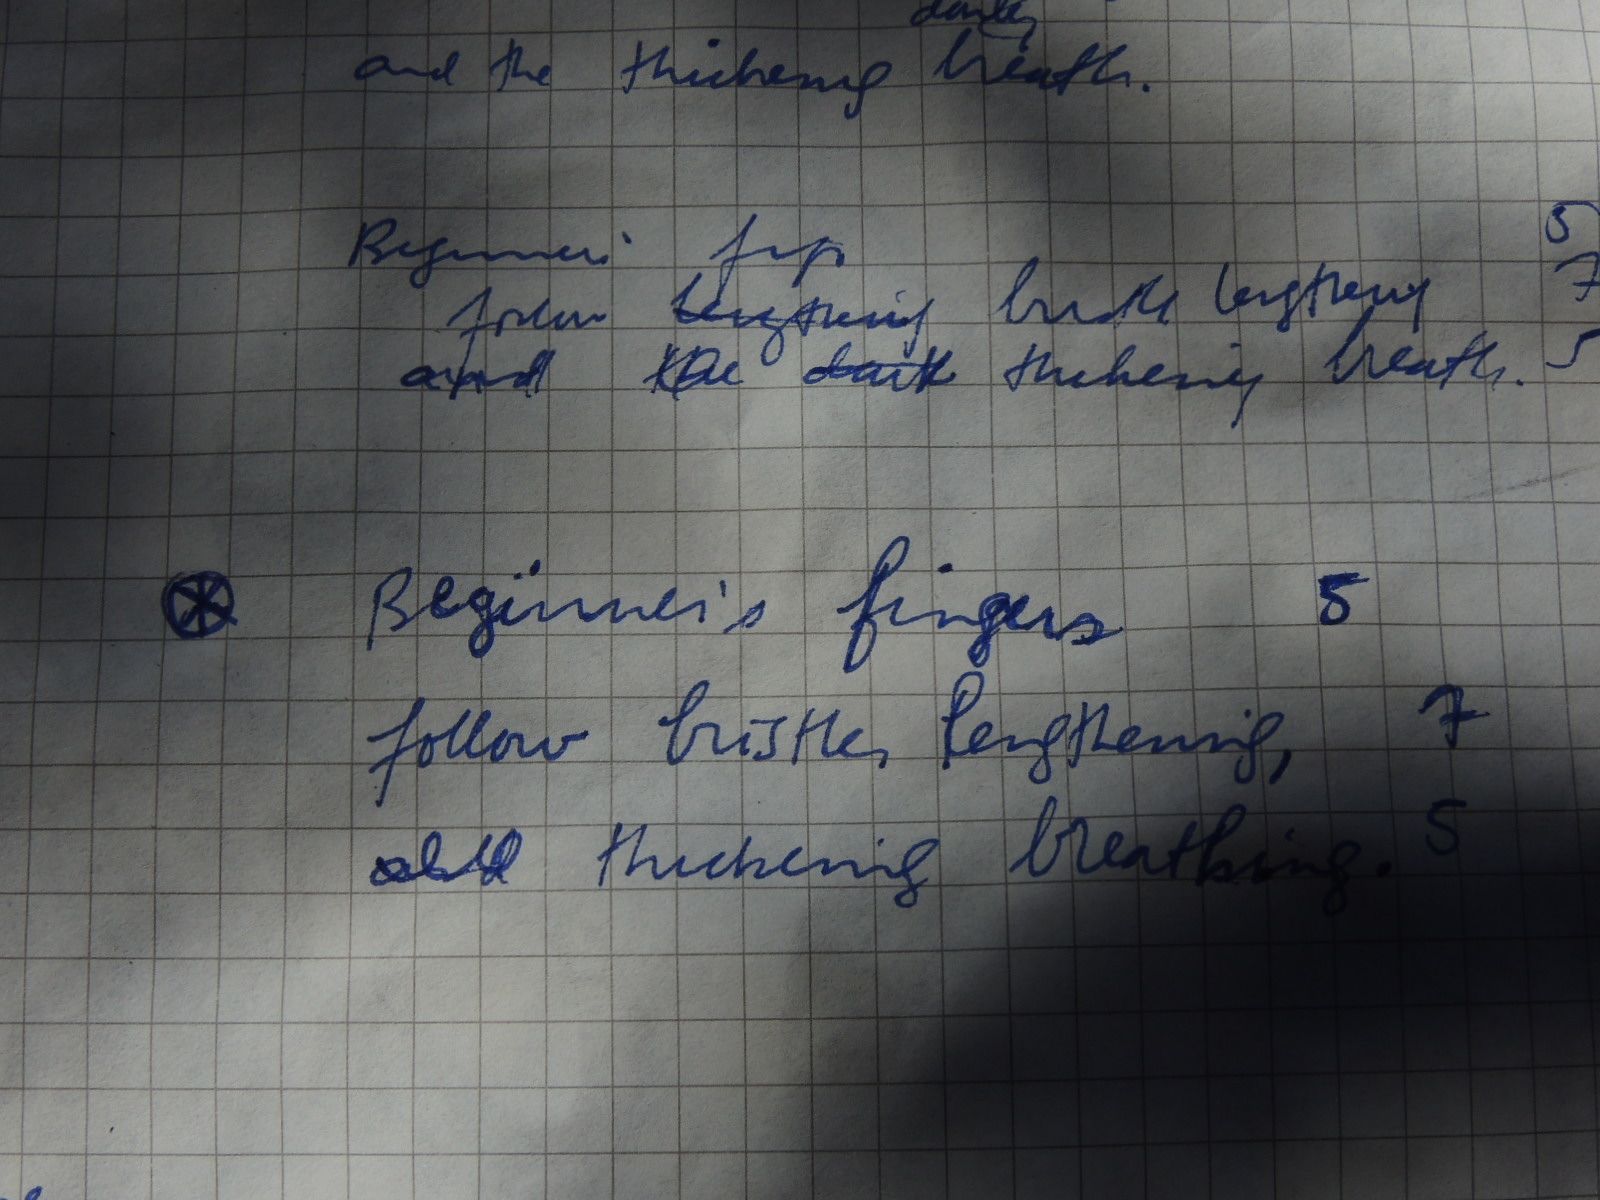 and the thickening breath.
Beginner's
follow lengthening lengthening 7
and the dark thickening breath. 5
Beginner's fingers 5
follow bristles lengthening, 7
thickening breathing. 5